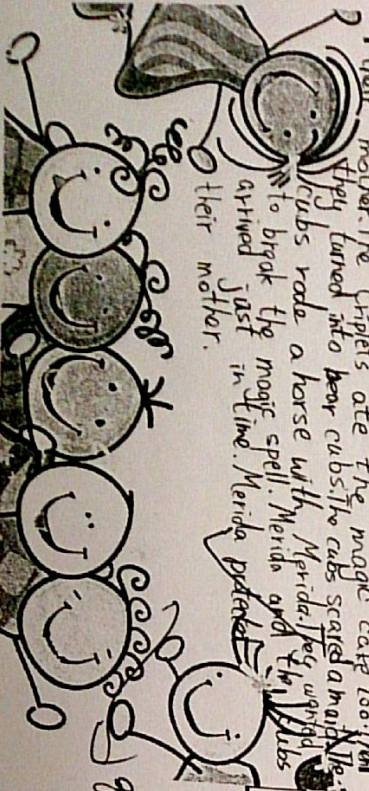 mother. The triplets ate the magic cake too. Then
they turned into bear cubs. The cubs scared a maid. The
cubs rode a horse with Merida. They wanted
to break the magic spell. Merida and the cubs
arrived just in time. Merida protected
their mother.